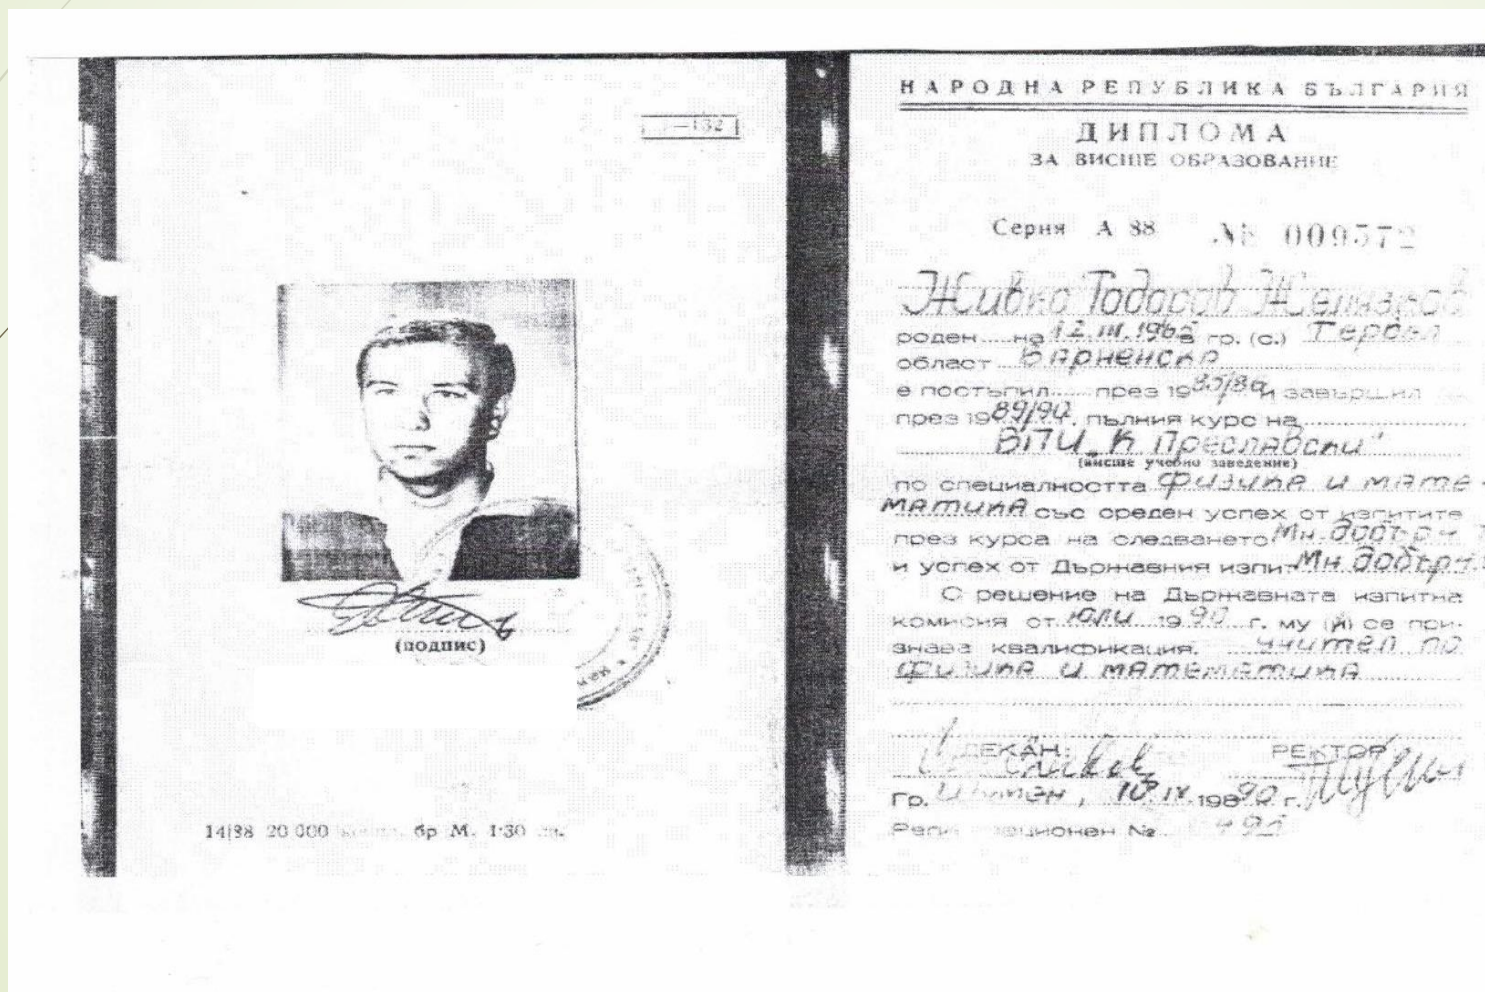 —132
(подпис)
14|88 20 000 бр М. 1·30 лв.
НАРОДНА РЕПУБЛИКА БЪЛГАРИЯ
ДИПЛОМА
ЗА ВИСШЕ ОБРАЗОВАНИЕ
Серия А 88 № 009572
Живко Тодоров Желязков
роден на 12.III.1965 гр. (с.) Тервел
област Варненска
е постъпил през 1985/86 и завършил
през 1989/90. пълния курс на
ВПИ „К Преславски"
(висше учебно заведение)
по специалността физика и мате-
матика със среден успех от изпитите
през курса на следването Мн. добър
и успех от Държавния изпит Мн добър
С решение на Държавната изпитна
комисия от юли 1990 г. му (й) се при-
знава квалификация. учител по
физика и математика
ДЕКАН: РЕКТОР
Гр. Шумен, 10.IX.1990 г.
№